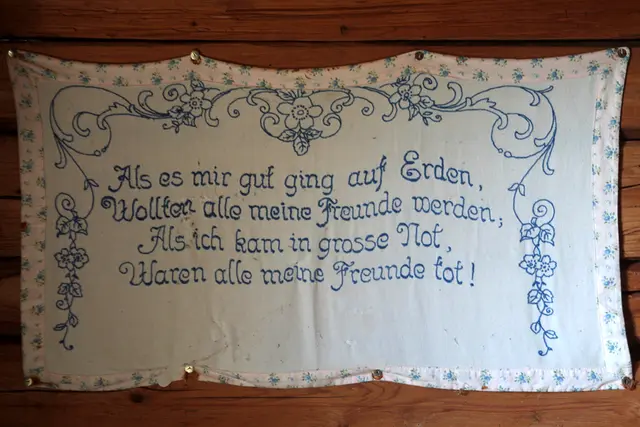 Als es mir gut ging auf Erden,
Wollten alle meine Freunde werden;
Als ich kam in grosse Not,
Waren alle meine Freunde tot!